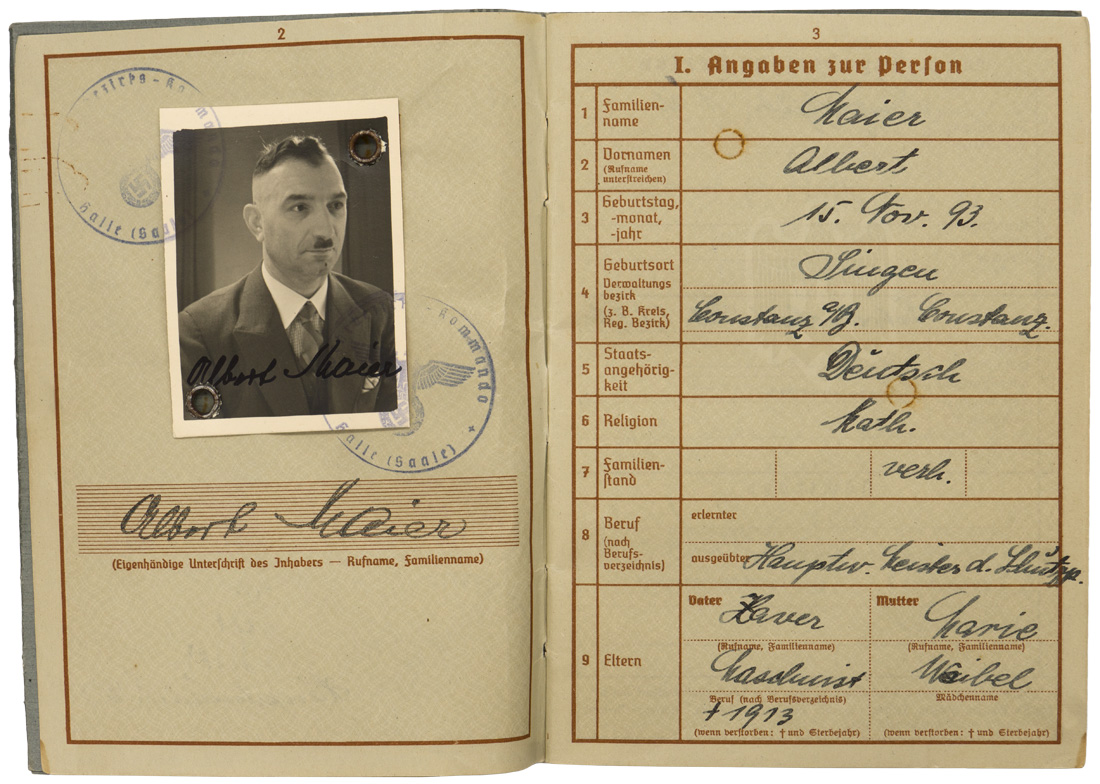 2
Bezirks-Kom
Halle (Saale)
Albert Maier
Kommando
Halle (Saale)
Albert Maier
(Eigenhändige Unterschrift des Inhabers — Rufname, Familienname)
3
I. Angaben zur Person
1 Familien-
name
Maier
2 Vornamen
(Rufname
unterstreichen)
Albert
3 Geburtstag,
-monat,
-jahr
15. Nov. 93.
4 Geburtsort
Verwaltungs
bezirk
(z. B. Kreis,
Reg. Bezirk)
Singen
Constanz a/B. Constanz.
5 Staats-
angehörig-
keit
Deutsch
6 Religion
Kath.
7 Familien-
stand
verh.
8 Beruf
(nach
Berufs-
verzeichnis)
erlernter
ausgeübter Hauptw. Meister d. Schutzp.
9 Eltern
Vater Xaver
Mutter Marie
(Rufname, Familienname)
(Rufname, Familienname)
Maschinist
Weibel
Beruf (nach Berufsverzeichnis)
Mädchenname
† 1913
(wenn verstorben: † und Sterbejahr)
(wenn verstorben: † und Sterbejahr)